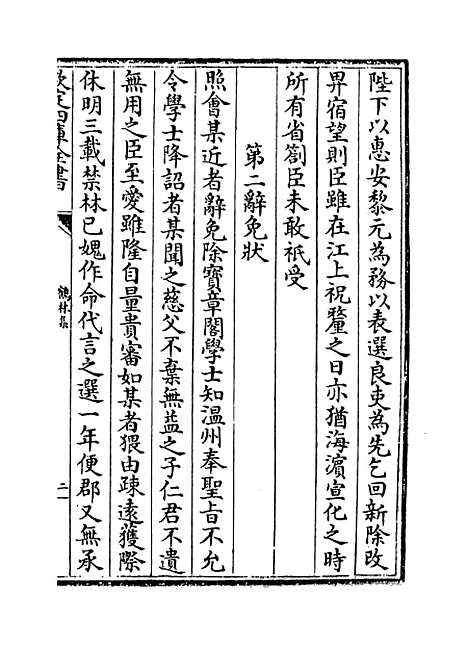 陛下以惠安黎元為務以表選良吏為先乞回新除改
畀宿望則臣雖在江上祝釐之日亦猶海濵宣化之時
所有省劄臣未敢祇受
第二辭免狀
照會某近者辭免除寳章閣學士知温州奉聖旨不允
令學士降詔者某聞之慈父不棄無益之子仁君不遺
無用之臣至愛雖隆自量貴審如某者猥由疎逺獲際
休明三載禁林已媿作命代言之選一年便郡又無承
欽定四庫全書
鶴林集
二